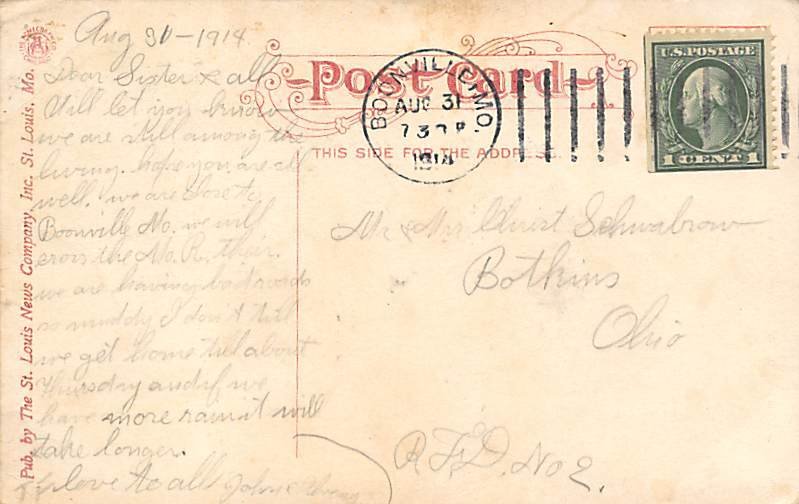 Aug 30-1914
Dear Sister & all
Will let you know
we are still among the
living. hope you are all
well. we are close to
Boonville Mo. we will
cross the Mo. R. ther.
we are having bad roads
so muddy I don't
we get home till about
Thursday and if we
have more rain it will
take longer.
love to all John &
Pub. by The St. Louis News Company, Inc. St. Louis, Mo.
Post Card
THIS SIDE FOR THE ADDRESS.
BOONVILLE, MO.
AUG 31
730 P
1914
U.S. POSTAGE
1 CENT 1
Mr & Mrs Christ Schwabrow
Botkins
Ohio
R.F.D. No 2.